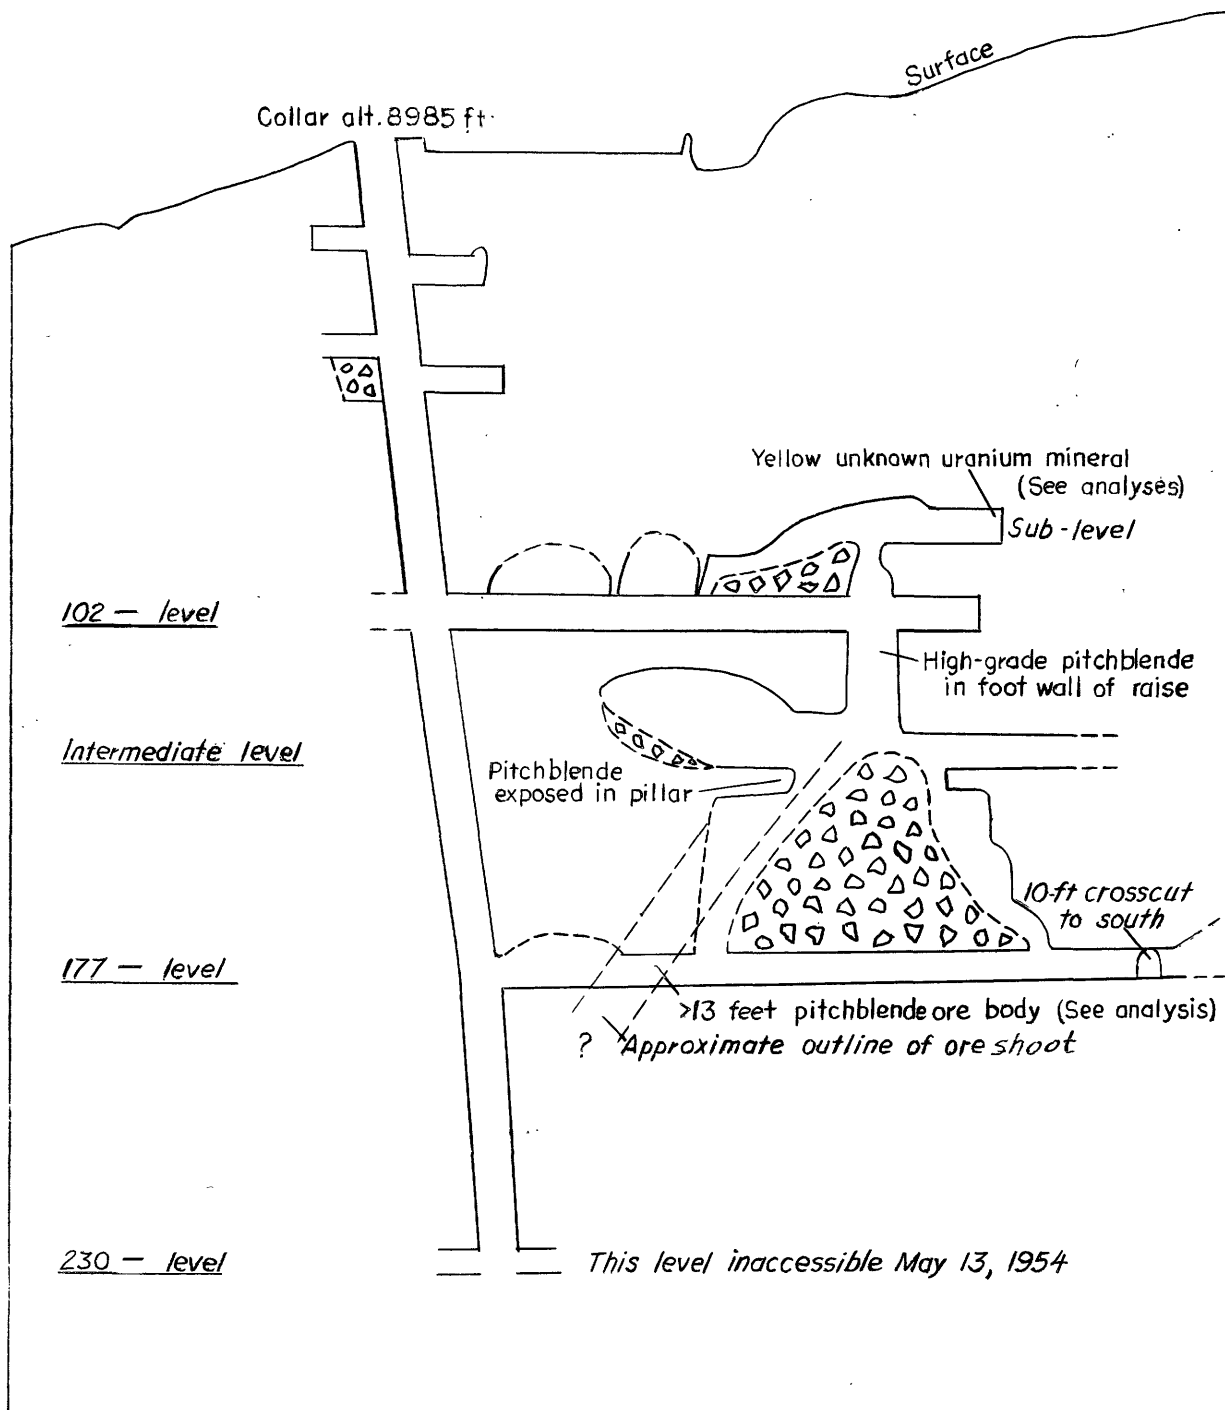 Surface
Collar alt. 8985 ft.
Yellow unknown uranium mineral
(See analyses)
Sub-level
102 — level
High-grade pitchblende
in foot wall of raise
Intermediate level
Pitchblende
exposed in pillar
10-ft crosscut
to south
177 — level
>13 feet pitchblende ore body (See analysis)
? Approximate outline of ore shoot
230 — level
This level inaccessible May 13, 1954